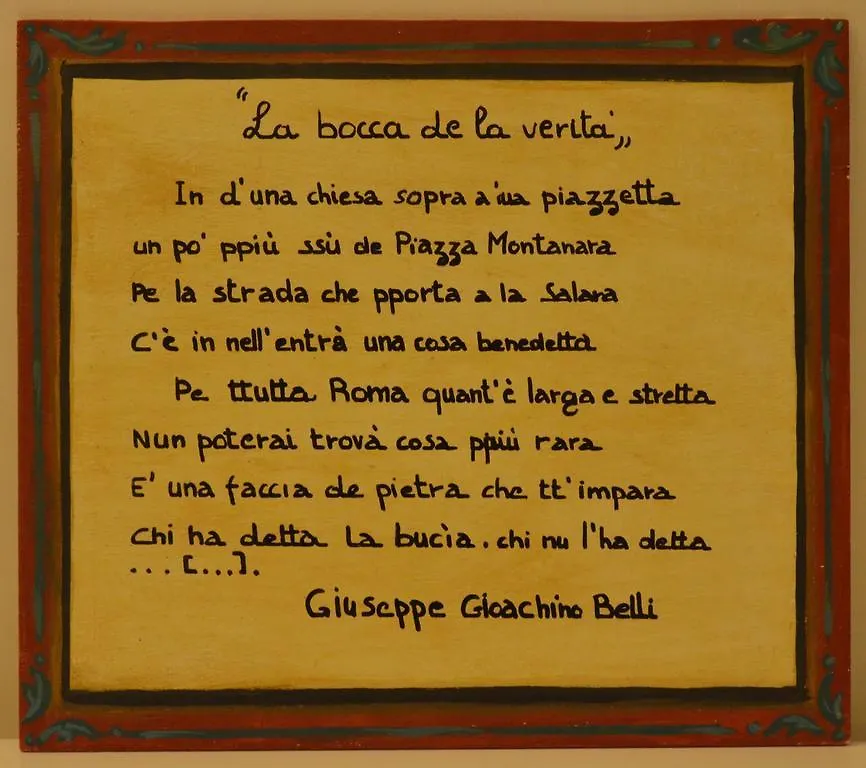 "La bocca de la verità„
In d'una chiesa sopra a 'na piazzetta
un po' ppiù ssù de Piazza Montanara
Pe la strada che pporta a la Salara
C'è in nell'entrà una cosa benedetta
Pe ttutta Roma quant'è larga e stretta
Nun poterai trovà cosa ppiù rara
E' una faccia de pietra che tt'impara
Chi ha detta la bucìa. chi nu l'ha detta
... [...].
Giuseppe Gioachino Belli